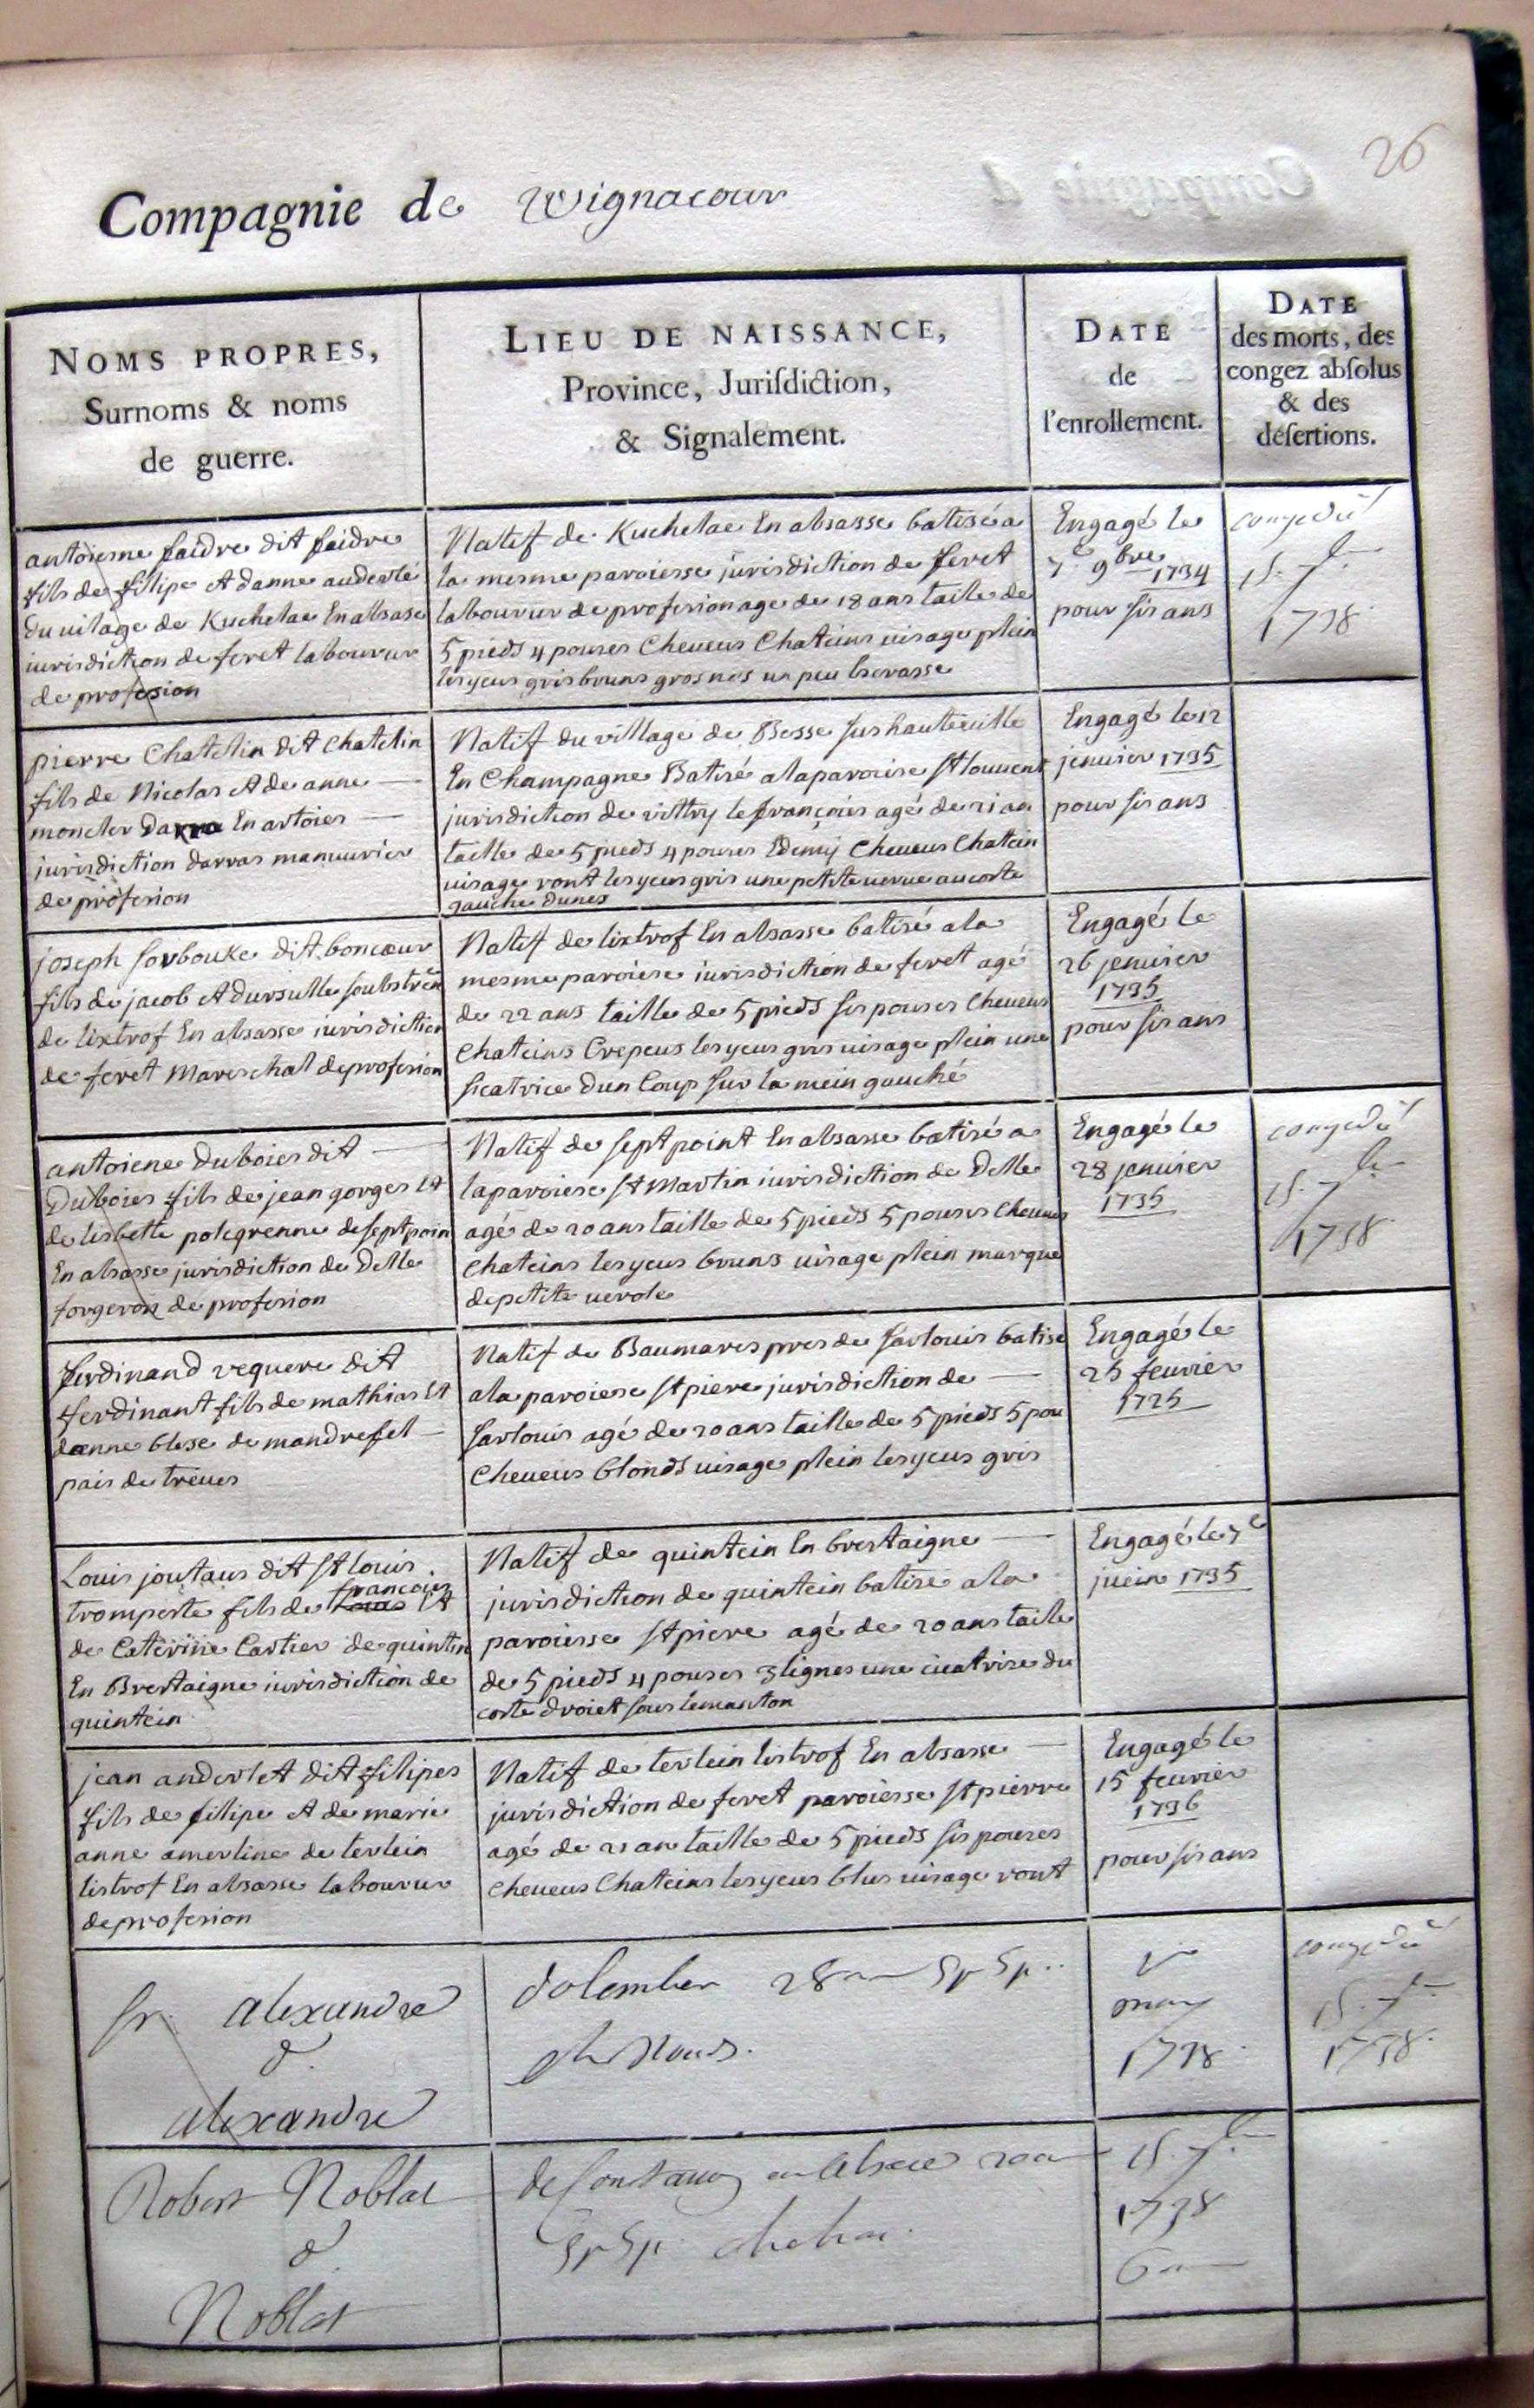 26
Compagnie de Wignacour
NOMS PROPRES,
Surnoms & noms
de guerre.
LIEU DE NAISSANCE,
Province, Jurisdiction,
& Signalement.
DATE
de
l'enrollement.
DATE
des morts, des
congez absolus
& des
désertions.
antoiene faidre dit faidre
fils de filipe et danne auderlé
du vilage de Kuchelae En absase
iurisdiction de feret laboureur
de profesion
Natif de Kuchelae En absasse batisé a
la mesme paroiesse jurisdiction de feret
laboureur de profesion age de 18 ans taile de
5 pieds 4 pouses Cheveus Chateins visage plein
les yeus gris bruns gros nes un peu
Engagé le
7e 9bre 1734
pour sis ans
congedié
15. 7bre
1738
pierre Chatelin dit chatelin
fils de Nicolas et de anne
moncler En artoies
jurisdiction darras manuvrier
de profesion
Natif du village de Besse sus hauteville
En Champagne Batisé a la paroiise St louvent
jurisdiction de vittry le françois agé de 21 an
taille de 5 pieds 4 pouses Edemy Cheveus Chatein
visage ront les yeus gris une petite verue au coste
gauche dunes
Engagé le 12
jenvier 1735
pour sis ans
joseph sorbouke dit boncœur
fils de jacob et dursulle soubstrée
de lixtrof En absasse iurisdiction
de feret Mareschal de profesion
Natif de lixtrof En absasse batisé a la
mesme paroiese iurisdiction de feret agé
de 22 ans taille de 5 pieds sis pouses Cheveus
Chateins Crepeus les yeus gris visage plein une
sicatrice dun Coup sur la mein gauche
Engagé le
26 jenvier
1735
pour sis ans
antoiene duboies dit
Duboies fils de jean gorges Et
de lisbette polegrenne de septpoin
En absasse jurisdiction de Delle
forgeron de profesion
Natif de septpoint En absasse batisé a
la paroiese St Martin iurisdiction de Delle
agé de 20 ans taille de 5 pieds 5 pouses Cheveus
chateins les yeus bruns visage plein marque
de petite verole
Engagé le
28 jenvier
1735
congedié
15. 7bre
1738
ferdinand reguere dit
ferdinant fils de mathias Et
danne blese de mandrefel
pais de treves
Natif de Baumares pres de sarlouis batise
a la paroiese St piere jurisdiction de
sarlouis agé de 20 ans taille de 5 pieds 5 pou
Cheveus blonds visage plein les yeus gris
Engagé le
25 fevrier
1725
Louis joutaus dit St louis
trompeste fils de francoies Et
de Caterine Cartier de quintin
En Brestaigne iurisdiction de
quintein
Natif de quintein En brestaigne
jurisdiction de quintein batise a la
paroiesse St piere agé de 20 ans taile
de 5 pieds 4 pouses 3 lignes une cicatrise du
coste droiet sous le manton
Engagé le 7e
juein 1735
jean anderlet dit filipes
fils de filipe et de marie
anne amerline de terlein
listrof En absasse laboureur
de profesion
Natif de terlein listrof En absasse
jurisdiction de feret paroiesse St pierre
agé de 21 an taille de 5 pieds sis pouses
cheveus Chateins les yeus blus visage ront
Engagé le
15 fevrier
1736
pour sis ans
alexandre
d.
alexandre
28 ans 5p 5p.
may
1738
congedié
15. 7bre
1738
Robert Noblat
d.
Noblat
en alsace 20 a
5p 5p.
15. 7bre
1738
6 ans